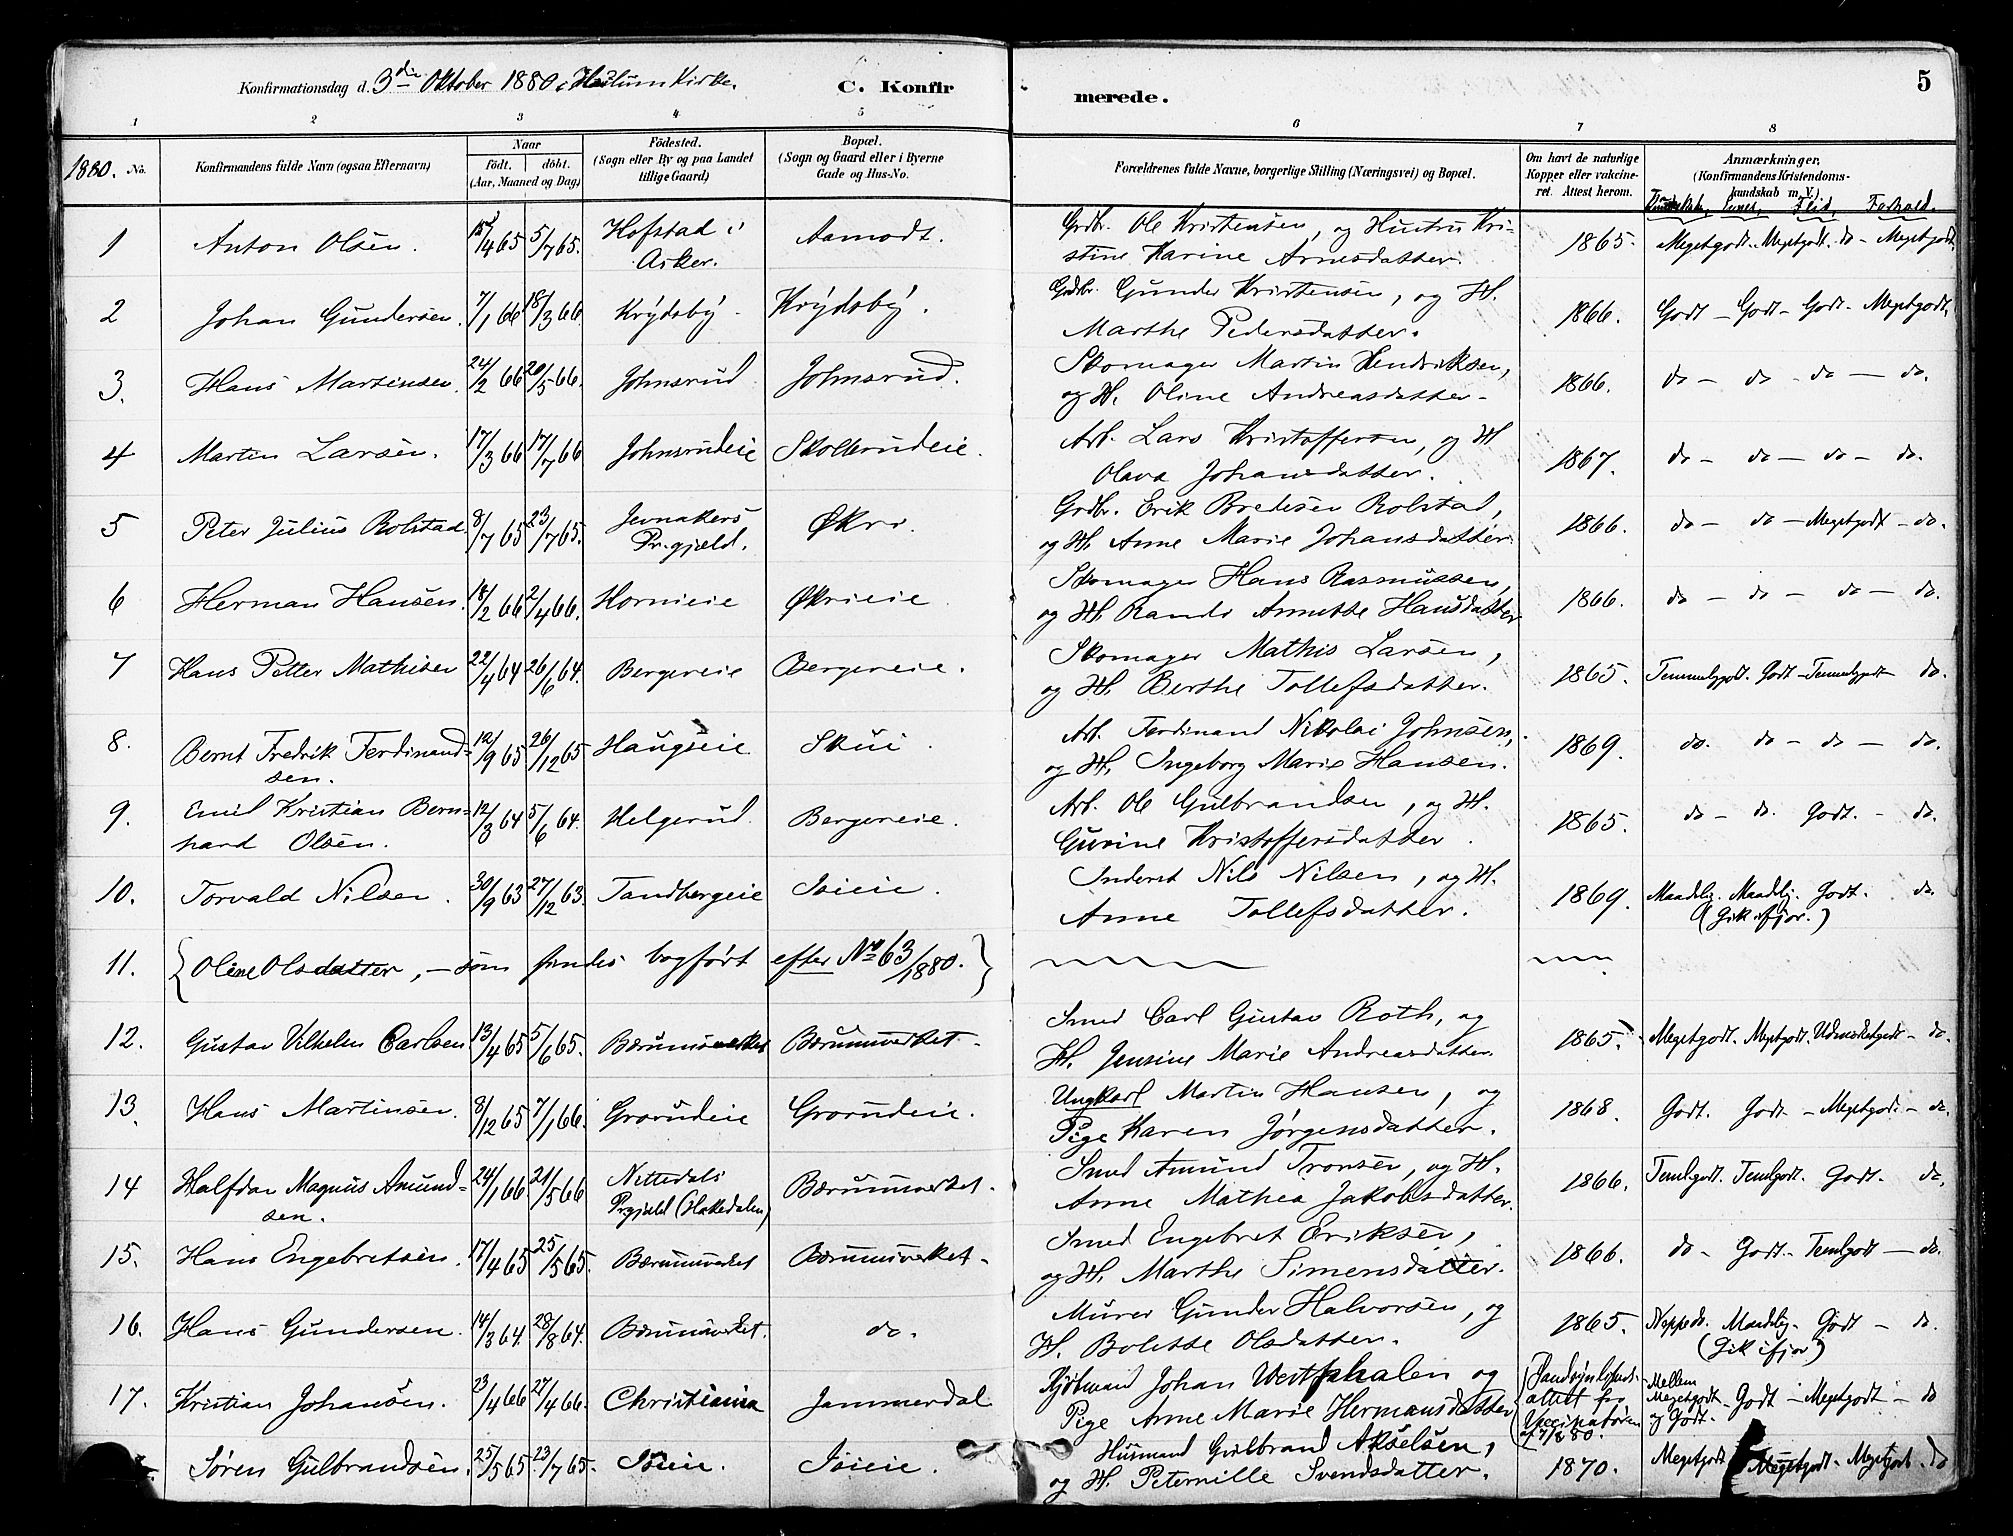 Konfirmationsdag d. 3die Oktober 1880 i Haslum Kirke.
C. Konfirmerede.
5
1 2 3 4 5 6 7 8
1880. No.
Konfirmandens fulde Navn (ogsaa Efternavn)
Naar
födt. döbt.
(Aar, Maaned og Dag)
Födested.
(Sogn eller By og paa Landet
tillige Gaard)
Bopæl.
(Sogn og Gaard eller i Byerne
Gade og Hus-No.
Forældrenes fulde Navne, borgerlige Stilling (Næringsvei) og Bopæl.
Om havt de naturlige
Kopper eller vaccine-
ret. Attest herom.
Anmærkninger,
(Konfirmandens Kristendoms-
kundskab m. V.)
Flid, Forhold.
1 Anton Olsen. 4 65 5/7 65. Hofstad i Asker. Aamodt. Gdbr. Ole Kristensen, og Hustru Kri-
stine Karine Arnesdatter. 1865. Megetgodt. Megetgodt. do - Megetgodt.
2 Johan Gundersen. 7/1 66 18/3 66. Krydsby. Krydsby. Gdbr. Gunder Kristensen, og H.
Marthe Pedersdatter. 1866. Godt - Godt - Godt - Megetgodt.
3. Hans Martinsen. 24/2 66 20/5 66. Johnsrud Johnsrud. Skomager Martin Hendriksen,
og H. Oline Andreasdatter - 1866. do - do - do - do.
4 Martin Larsen. 17/3 66 17/7 66 Johnsrudeie Skollerudeie. Arb. Lars Kristoffersen, og H
Olava Johansdatter. 1867. do - do - do - do.
5 Peter Julius Rolstad 8/7 65 23/7 65. Jevnakers Pr.gjæld. Økri. Gdbr. Erik Bredesen Rolstad,
og H. Anne Marie Johansdatter 1866. do - do - Megetgodt - do.
6 Herman Hansen. 18/2 66 2/4 66. Hornieie Økrieie. Skomager Hans Rasmussen,
og H. Randi Annette Hansdatter 1866. do - do - do - do.
7 Hans Petter Mathisen 22/4 64 26/6 64. Bergereie Bergereie. Skomager Mathis Larsen,
og H. Berthe Tollefsdatter. 1865. Temmeliggodt. Godt - Temmeliggodt - do.
8. Bernt Fredrik Ferdinand-
sen. 12/9 65 26/12 65 Haugseie Skui. Arb. Ferdinand Nikolai Johnsen,
og H. Ingeborg Marie Hansen. 1869. do. do - do - do.
9. Emil Kristian Bern-
hard Olsen. 12/3 64 5/6 64. Helgerud. Bergereie. Arb. Ole Gulbrandsen, og H.
Gurine Kristoffersdatter. 1865. do - do. Godt. - do.
10. Torvald Nilsen. 30/9 63 27/12 63. Tandbergeie Isieie. Inderst Nils Nilsen, og H.
Anne Tollefsdatter. 1869. Maadelig. Maadelig. Godt. do
(Gik ifjor.)
11. {Oline Olsdatter, - som findes bogført efter No 63/1880.}
12. Gustav Vilhelm Carlsen 13/4 65 5/6 65. Bærumsverket Bærumsverket. Smed Carl Gustav Roth, og
H. Jensine Marie Andreasdatter. 1865. Megetgodt. Megetgodt. Udmerketgodt - do.
13. Hans Martinsen. 8/12 65 7/1 66. Grorudeie Grorudeie. Ungkarl Martin Hansen, og
Pige Karen Jørgensdatter. 1868. Godt. Godt - Megetgodt - do.
14 Halfdan Magnus Amund-
sen. 24/1 66 21/5 66 Nittedals Prgjæld (Hakedalen) Bærumsverket. Smed Amund Tronsen, og H.
Anne Mathea Jakobsdatter. 1866. Temlgodt. Temlgodt. Godt. do,
15. Hans Engebretsen. 17/4 65 25/5 65. Bærumsverket Bærumsverket. Smed Engebret Eriksen,
og H. Marthe Simensdatter. 1866. do - Godt - Temlgodt - do.
16. Hans Gundersen. 14/3 64. 28/8 64. Bærumsverket. do. Murer Gunder Halvorsen, og
H. Bolette Olsdatter. 1865. Neppe do. Maadelig. Godt - do.
(Gik ifjor)
17. Kristian Johansen. 23/4 66 27/4 66. Christiania Jammerdal Johan Westphalen og
Pige Anne Marie Hermansdatter Mellem
Megetgodt
og Godt. - Godt - Megetgodt - do
Søren Gulbrandsen. 25/5 65 23/7 65. Isieie. Isieie. Husmand Gulbrand Akselsen,
og H. Peternille Svendsdatter. 1870. Megetgodt Megetgodt - Megetgodt. do